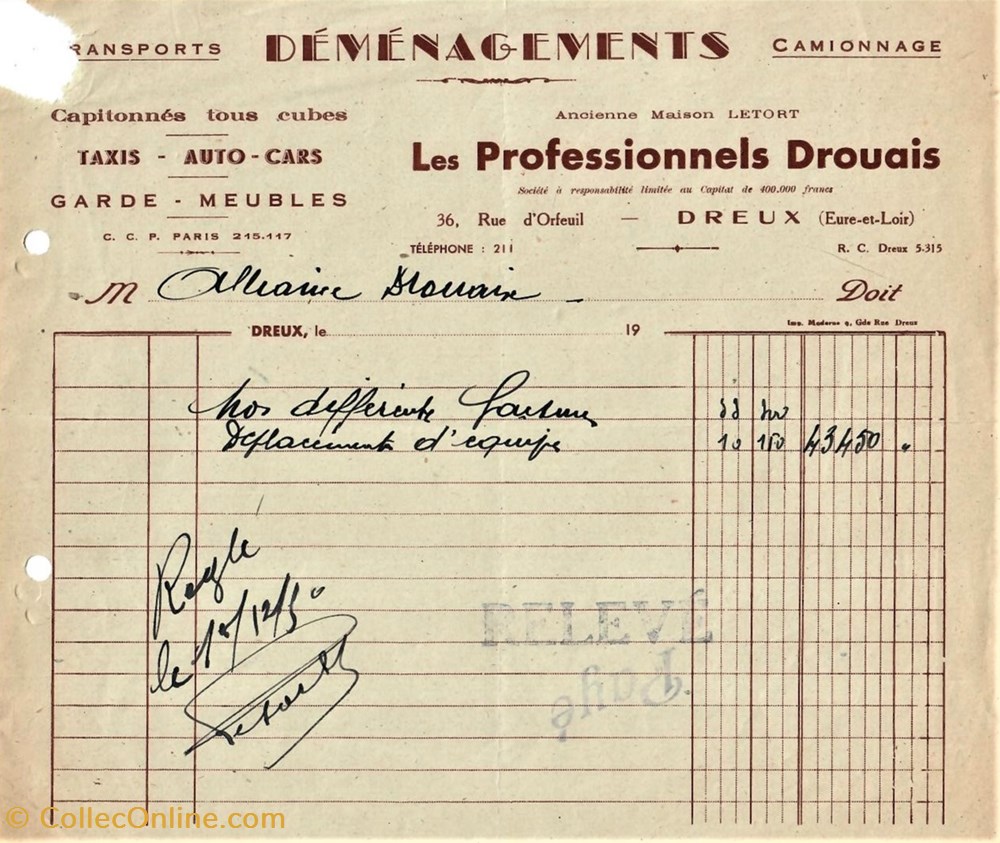 RANSPORTS DÉMÉNAGEMENTS CAMIONNAGE
Capitonnés tous cubes
TAXIS - AUTO-CARS
GARDE - MEUBLES
C. C. P. PARIS 215.117
Ancienne Maison LETORT
Les Professionnels Drouais
Société à responsabilité limitée au Capital de 400.000 francs
36, Rue d'Orfeuil — DREUX (Eure-et-Loir)
TÉLÉPHONE : 211 R. C. Dreux 5.315
M Alliance Drouaise Doit
Imp. Moderne 9, Gde Rue Dreux
DREUX, le 19
Nos différente facture
Déplacements d'équipe 10 150 43450 "
Réglé
le 12/50
Letort
RELEVÉ
Payé
© CollecOnline.com